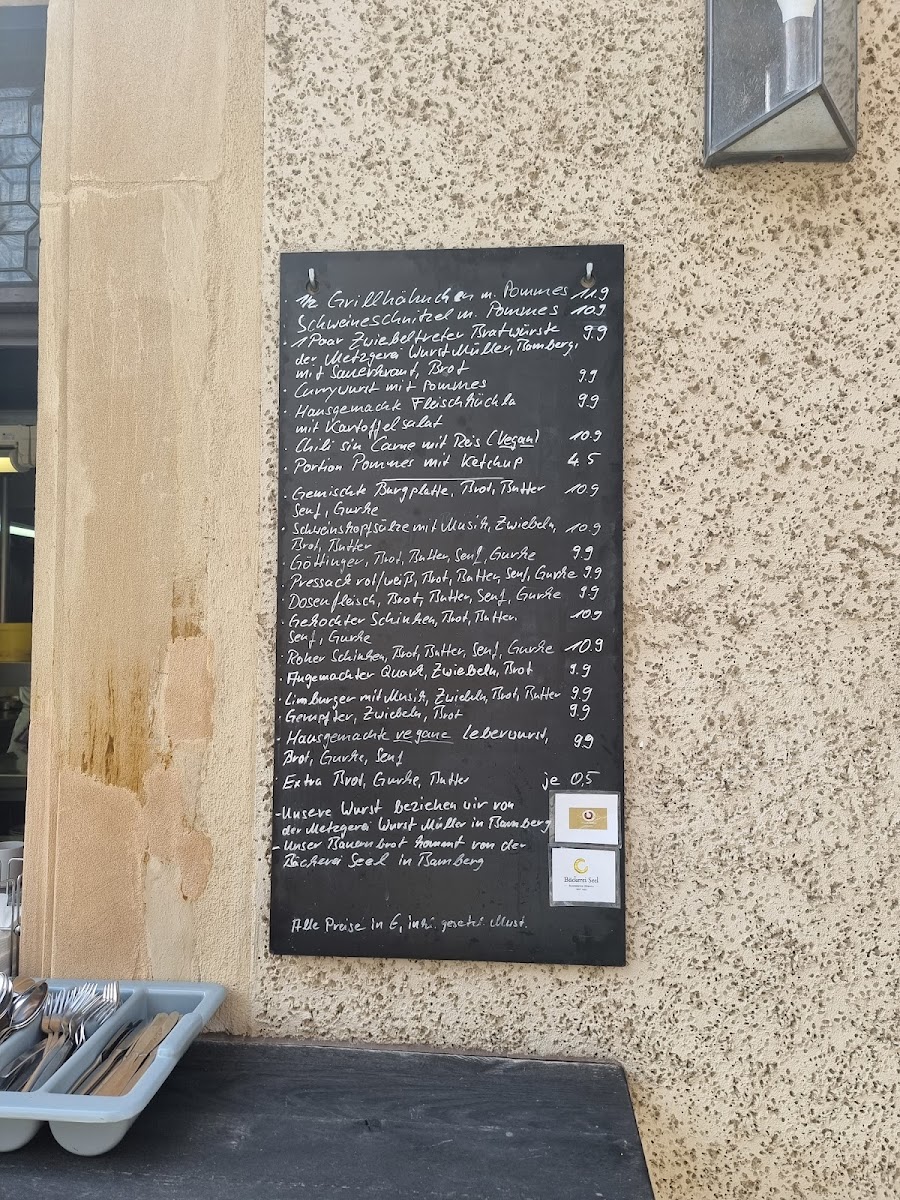 · 1/2 Grillhähnchen m. Pommes 11.9
Schweineschnitzel m. Pommes 10.9
· 1 Paar Zwiebeltreter Bratwürste 9.9
der Metzgerei Wurst Müller, Bamberg,
mit Sauerkraut, Brot
· Currywurst mit Pommes 9.9
· Hausgemachte Fleischküchla 9.9
mit Kartoffelsalat
· Chili sin Carne mit Reis (vegan) 10.9
· Portion Pommes mit Ketchup 4.5
· Gemischte Burgplatte, Brot, Butter 10.9
Senf, Gurke
· Schweinskopfsülze mit Musik, Zwiebeln, 10.9
Brot, Butter
Göttinger, Brot, Butter, Senf, Gurke 9.9
· Pressack rot/weiß, Brot, Butter, Senf, Gurke 9.9
· Dosenfleisch, Brot, Butter, Senf, Gurke 9.9
· Gekochter Schinken, Brot, Butter, 10.9
Senf, Gurke
· Roher Schinken, Brot, Butter, Senf, Gurke 10.9
· Angemachter Quark, Zwiebeln, Brot 9.9
· Limburger mit Musik, Zwiebeln, Brot, Butter 9.9
· Gerupfter, Zwiebeln, Brot 9.9
· Hausgemachte vegane Leberwurst, 9.9
Brot, Gurke, Senf
· Extra Brot, Gurke, Butter je 0,5
- Unsere Wurst beziehen wir von
der Metzgerei Wurst Müller in Bamberg
- Unser Bauernbrot kommt von der
Bäckerei Seel in Bamberg
Bäckerei Seel
Alle Preise in €, inkl. gesetzl. Mwst.